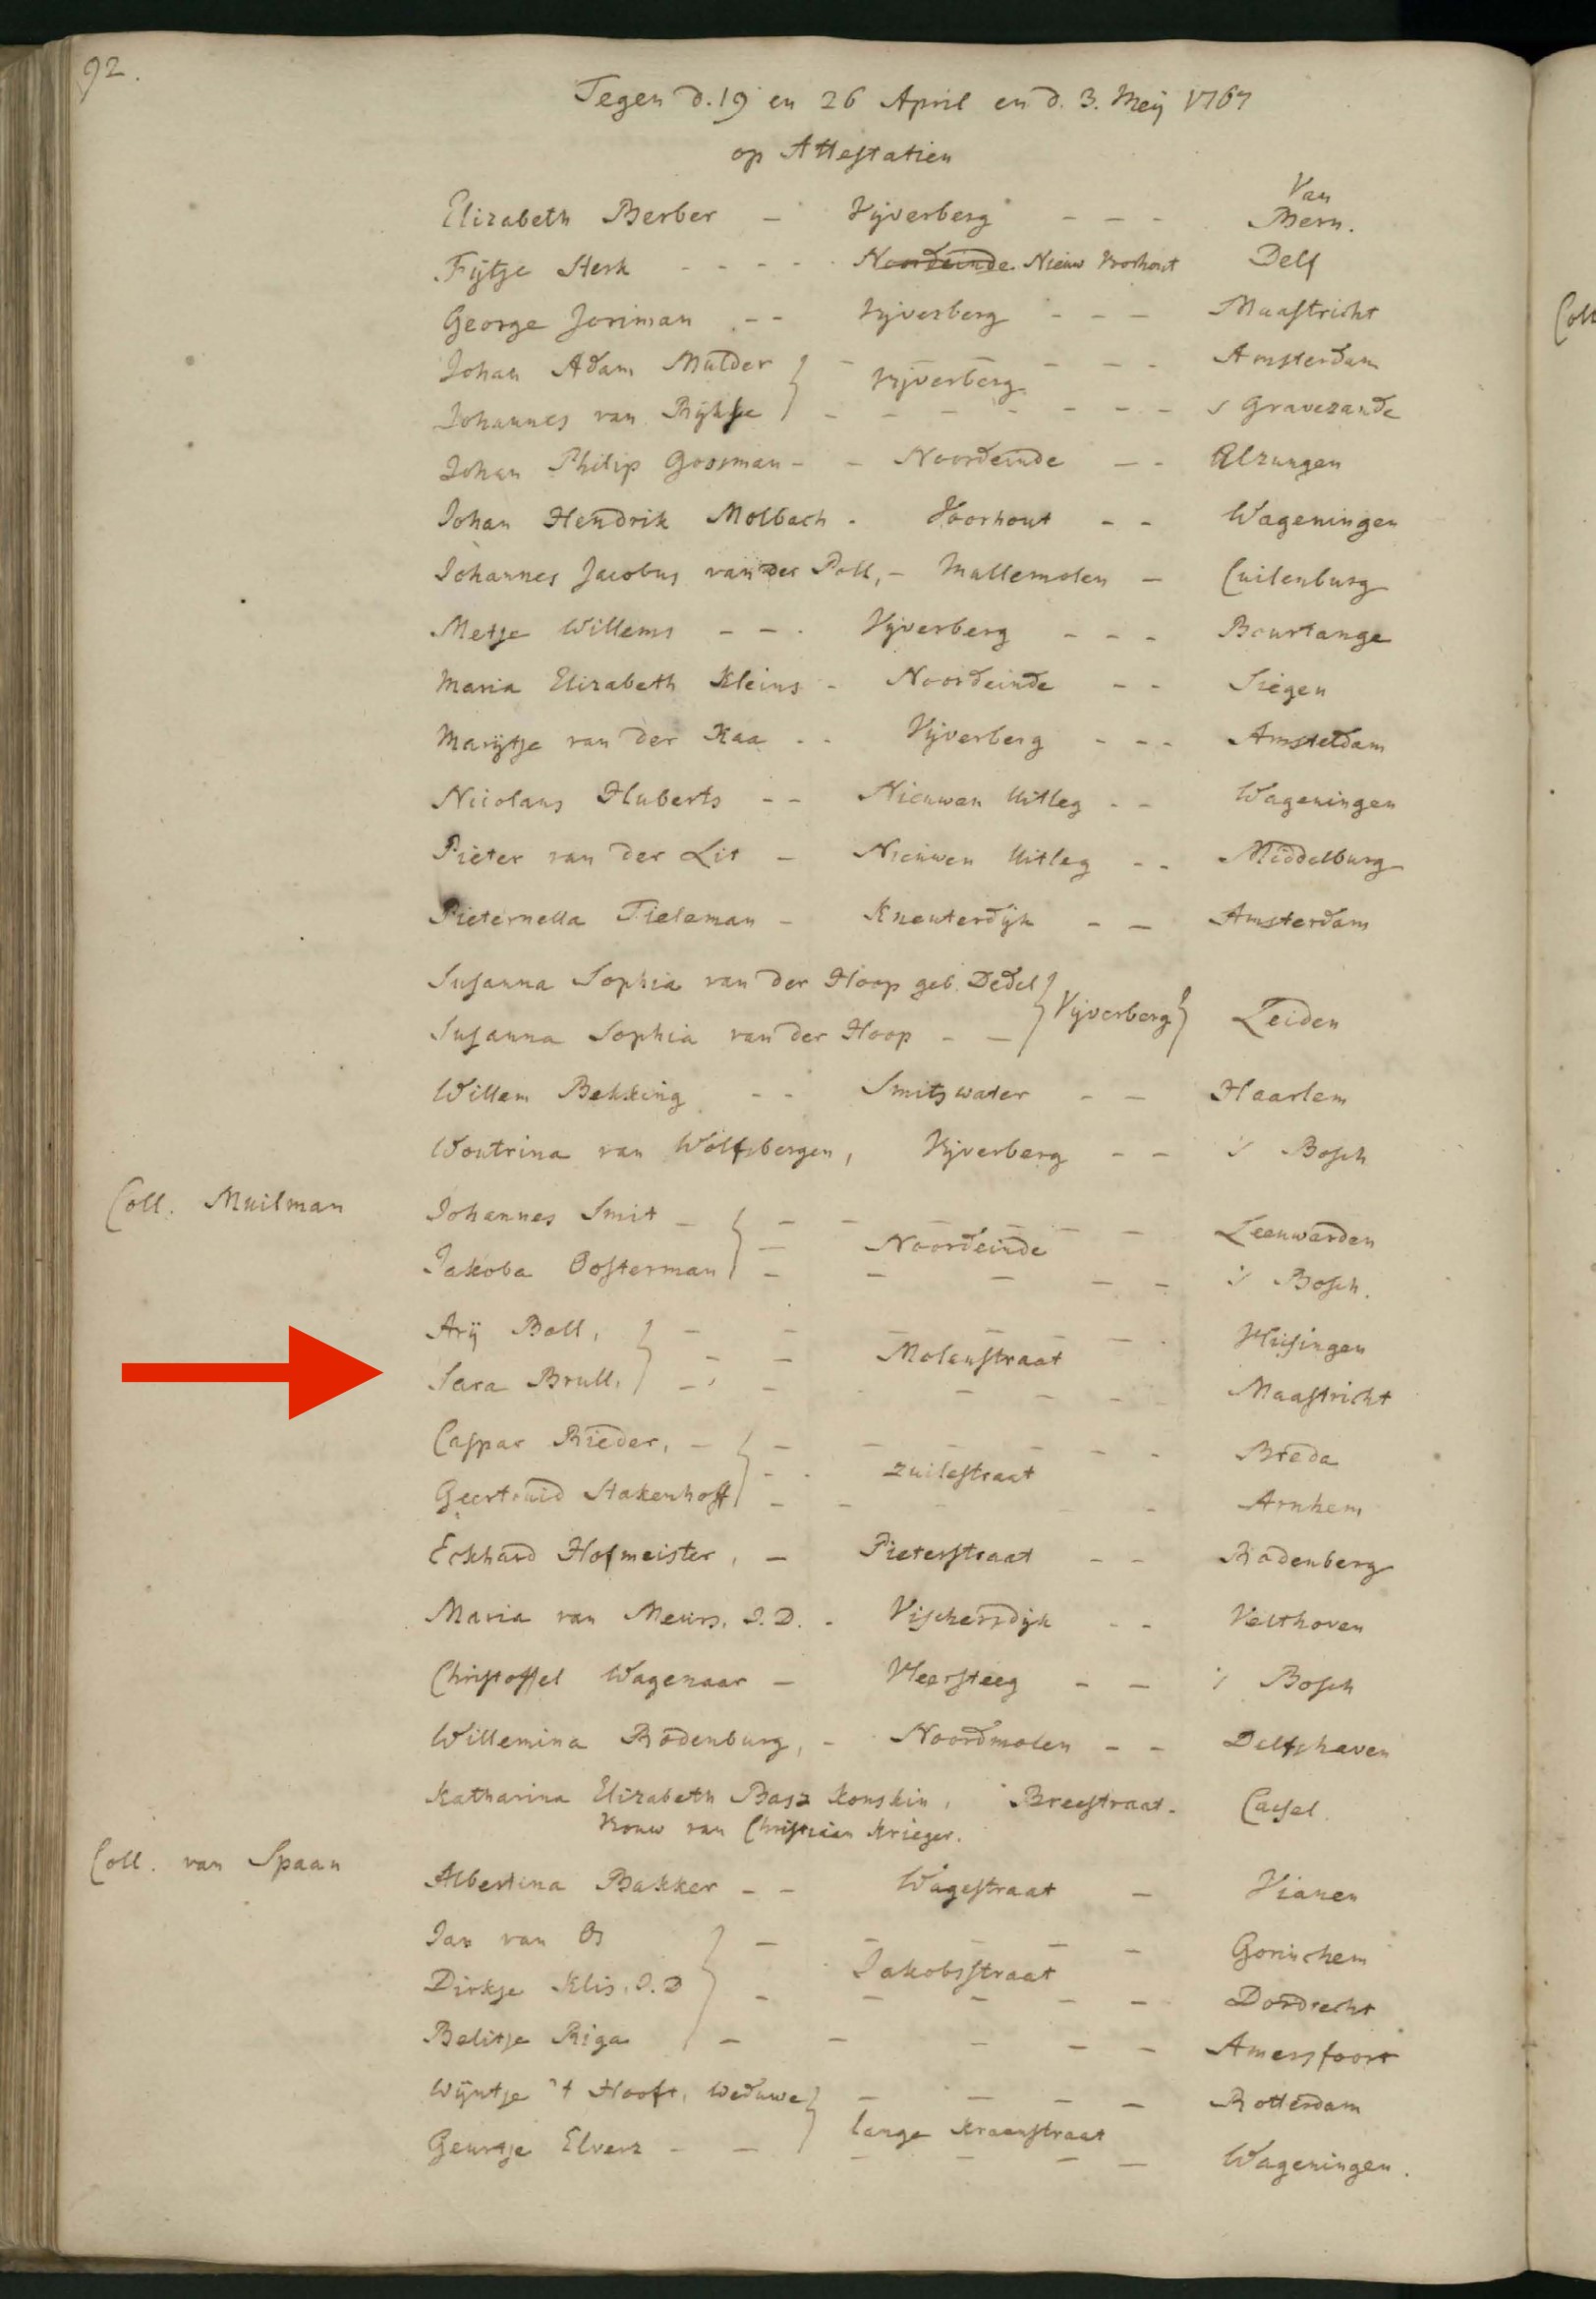 92.
Tegen d. 19 en 26 April en d. 3. Meij 1767
op Attestatien
Van
Elizabeth Berber - Vijverberg - - - Bern.
Fijtje Sterk - - - - - Noordeinde. Nieuw Vorhout Delf
George Joriman - - Vijverberg - - - Maastricht
Johan Adam Mulder - - - - - Amsterdam
Vijverberg
Johannes van - - - - - - - - s Gravezande
Johan Philip Gossman - - Noordeinde - - Alzungen
Johan Hendrik Molbach - Voorhout - - Wageningen
Johannes Jacobus van der Poll, - Mallemolen - Cuilenburg
Metje Willems - - - Vijverberg - - - Bourtange
Maria Elizabeth Kleins - Noordeinde - - Siegen
Marijtje van der Kaa - - Vijverberg - - - Amsteldam
Nicolaus Huberts - - Nieuwen Uitleg - - Wageningen
Pieter van der Lit - Nieuwen Uitleg - - Middelburg
Pieternella Tieleman - Kneuterdijk - - Amsterdam
Susanna Sophia van der Hoop geb. Dedel
Vijverberg Leiden
Susanna Sophia van der Hoop - -
Willem Bekking - - Smitswater - - Haarlem
Woutrina van Wolfsbergen, Vijverberg - - 's Bosch
Coll. Muilman
Johannes Smit - - - - - - - Leeuwarden
Noordeinde
Jakoba Oosterman - - - - - 's Bosch.
Arij Boll, - - - - - - Vlissingen
Molenstraat
Sara Brull, - - - - - - - Maastricht
Caspar Rieder, - - - - - - - Breda
Zuilestraat
Geertruid Stakenhoff - - - - - Arnhem
Eckhard Hofmeister, - Pieterstraat - - Rodenberg
Maria van Meurs, J.D. - Vischersdijk - - Velthoven
Christoffel Wagenaar - Heersteeg - - 's Bosch
Willemina Rodenburg, - Noordmolen - - Delfshaven
Katharina Elizabeth Basz Konskin, Breestraat - Cassel.
Vrouw van Christiaan Krieger.
Coll. van Spaan
Albertina Bakker - - Wagestraat - Vianen
Jan van Os - - - - Gorinchem
Jakobsstraat
Dirkje Klis, J.D - - - - - Dordrecht
Belitje Riga - - - - - Amersfoort
Wijntje 't Hooft, Weduwe - - - - Rotterdam
lange Kraanstraat
Geurtje Elverz - - - - - - Wageningen.
Coll